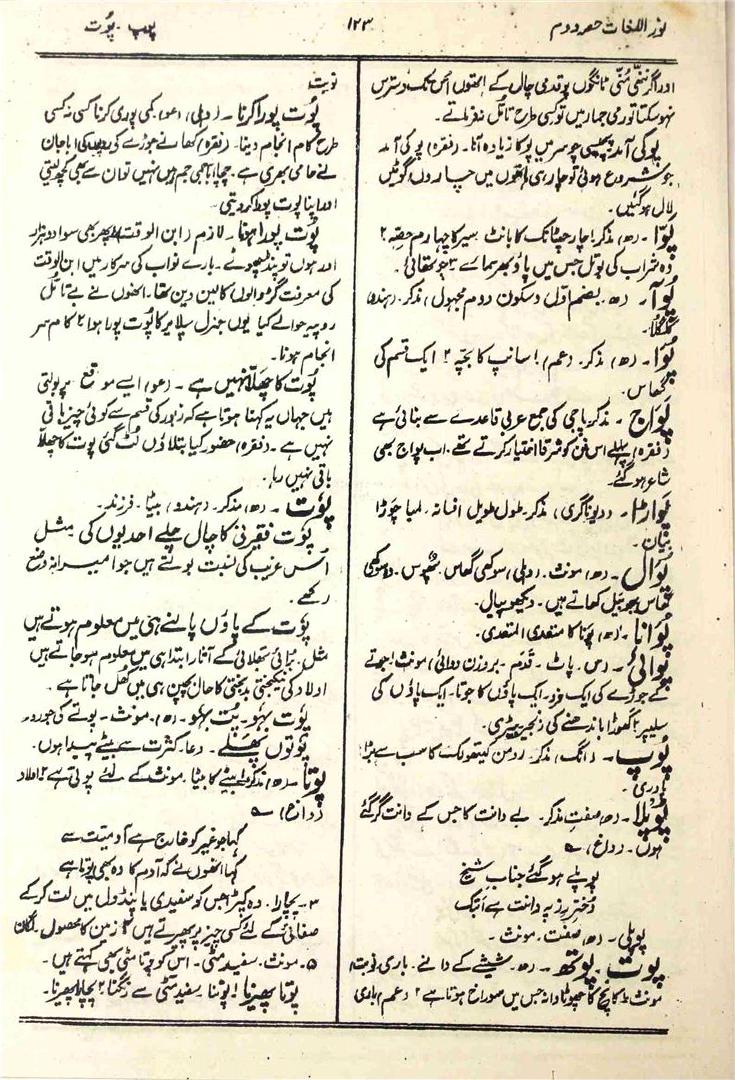 نور اللغات حصہ دوم
۱۲۳
پوپ ۔ پُوت
اور اگر ننھی مُنّی ٹانگوں پوقدمی چال کے ہاتھوں اُس تک دسترس
نہو سکتا تو رمی جمار میں تو کسی طرح تامل نفرماتے۔
پو کی آمد پھنسی چوسر میں پو کا زیادہ آنا۔ (فقرہ) پو کی آمد
جو شروع ہوئی تو چار ہی ہاتھوں میں چاروں گوٹیں
لال ہوگئیں۔
پَوّا ۔ (ھ) مذکر ۱ چار چھٹانک کا بانٹ۔ سیر کا چہارم حصہ ۲
وہ شراب کی بوتل جس میں پاؤ بھر سمائے ۳ چوتھائی۔
پُوآ ۔ (ھ۔ بضم اوّل وسکون دوم مجہول) مذکر۔ (ہندو)
گلگلا۔
پُوَا ۔ (ھ) مذکر۔ (عم) ۱ سانپ کا بچّہ ۲ ایک قسم کی
گھاس۔
پَواج ۔ مذکر۔ پاجی کی جمع عربی قاعدے سے بنائی ہے
(فقرہ) پہلے اس فن کو شرفا اختیار کرتے تھے۔ اب پواج بھی
شاعر ہوگئے۔
پَوارڑا ۔ (دیوناگری) مذکر۔ طول طویل افسانہ۔ لمبا چوڑا
بیان۔
پُوال ۔ (ھ) مونث۔ (دہلی) سوکھی گھاس۔ پھُوس۔ وہ سوکھی
گھاس جو بیل کھاتے ہیں۔ دیکھو پیال۔
پُوانا ۔ (ھ) پونا کا متعدی المتعدی۔
پوائی ۔ (س۔ پاٹ۔ قدم۔ بروزن دوائی) مونث ۱ جوتے
کے جوڑے کی ایک فرد۔ ایک پاؤں کا جوتا۔ ایک پاؤں کی
سلیپر ۲ گھوڑا باندھنے کی زنجیر۔ بیڑی۔
پُوپ ۔ (انگ) مذکر۔ رومن کیتھولک کا سب سے بڑا
پادری۔
پُوپلا ۔ (ھ) صفت۔ مذکر۔ بے دانت کا جس کے دانت گر گئے
ہوں۔ (داغ) ؎
پوپلے ہوگئے جنابِ شیخ
دُختر رز پہ دانت ہے اَبتک
پوپلی ۔ (ھ) صفت۔ مونث۔
پوت ۔ پوتھ ۔ (ھ۔ شیشے کے دانے۔ باری نوبت)
مونث ۱ کانچ کا چھوٹا دانہ جس میں سوراخ ہوتا ہے ۲ (عم) باری
نوبت
پُوت پورا کرنا ۔ (دہلی) (عو) کمی پوری کرنا کسی نہ کسی
طرح کام انجام دینا۔ (فقرہ) کھانے جوڑے کی روپوں کی ابا جان
نے حامی بھری ہے۔ چچا ابا بھی جم جم ہیں نہیں تو ان سے بھی کچھ لیتی
اور اپنا پوت پورا کر دیتی۔
پُوت پورا ہونا ۔ لازم (ابن الوقت) پھر بھی سوا دو ہزار
اور ہوں تو پنڈ چھوٹے۔ بارے نواب کی سرکار میں ابن الوقت
کی معرفت گڑ والوں کا لین دین تھا۔ انھوں نے بے تامل
روپیہ حوالے کیا یوں جنرل سپلائر کا پُوت پورا ہوا ۲ کام سر
انجام ہونا۔
پُوت کا چھلّا نہیں ہے ۔ (عو) ایسے موقع پر بولتی
ہیں جہاں یہ کہنا ہوتا ہے کہ زیور کی قسم سے کوئی چیز باقی
نہیں ہے۔ (فقرہ) حضور کیا بتلاؤں لُٹ گئی پوت کا چھلّا
باقی نہیں رہا۔
پُوت ۔ (ھ) مذکر۔ (ہندو) بیٹا۔ فرزند۔
پُوت فقیرنی کا چال چلے احدیوں کی مثل
اُس غریب کی نسبت بولتے ہیں جو امیرانہ وضع
رکھے۔
پُوت کے پاؤں پالنے ہی میں معلوم ہوتے ہیں
مثل۔ بُرائی بھلائی کے آثار ابتدا ہی میں معلوم ہو جاتے ہیں
اولاد کی نیکبختی بدبختی کا حال بچپن ہی میں کھُل جاتا ہے۔
پُوت بہُو۔ پُت بہُو ۔ (ھ) مونث۔ پوتے کی جورو۔
پوتوں پھلے ۔ دعا۔ کثرت سے بیٹے پیدا ہوں۔
پوتا ۔ (ھ) مذکر ۱ بیٹے کا بیٹا۔ مونث کے لئے پوتی ہے ۲ اولاد
(داغ) ؎
کہا جو غیر کو خارج ہے آدمیت سے
کہا انھوں نے کہ آدم کا وہ بھی پوتا ہے
۳۔ پچارا۔ وہ کپڑا جس کو سفیدی یا پنڈول میں لت کر کے
صفائی کے لئے کسی چیز پر پھیرتے ہیں ۴ زمین کا محصول۔ لگان
۵۔ مونث۔ سفید مٹی۔ اس کو پوتا مٹی بھی کہتے ہیں۔
پوتا پھیرنا ۱ پوتنا۔ سفید مٹی سے رنگنا ۲ پچارا پھیرنا۔